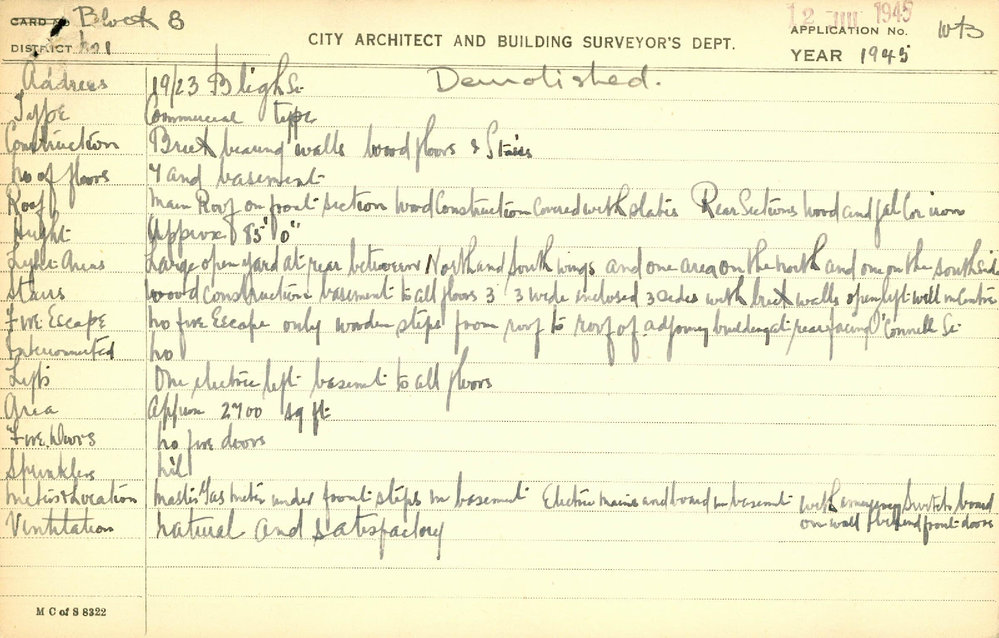 CARD NO Block 8
12 JUL 1945
APPLICATION No. WB
DISTRICT No 1
CITY ARCHITECT AND BUILDING SURVEYOR'S DEPT.
YEAR 1945
Address 19/23 Bligh St Demolished.
Type Commercial type
Construction Brick bearing walls wood floors & Stairs
No of floors 7 and basement
Roof Main Roof on front section Wood Construction Covered with slates Rear Sections Wood and Gal Cor iron
Height Approx 85' 0"
Light Areas Large open yard at rear between North and South wings and one area on the north and one on the south side
Stairs Wood construction basement to all floors 3' 3 wide inclosed 3 sides with brick walls open lift well in Centre
Fire Escape No fire Escape only wooden steps from roof to roof of adjoining building at rear facing O'Connell St
Interconnected No
Lifts One electric lift basement to all floors
Area Approx 2700 sq ft
Fire Doors No fire doors
Sprinklers Nil
Meters & Location Master Gas meter under front steps in basement Electric mains and board in basement with emergency Switch board
on wall behind front doors
Ventilation Natural and satisfactory
M C of S 8322